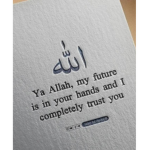 الله
Ya Allah, my future
is in your hands and I
completely trust you